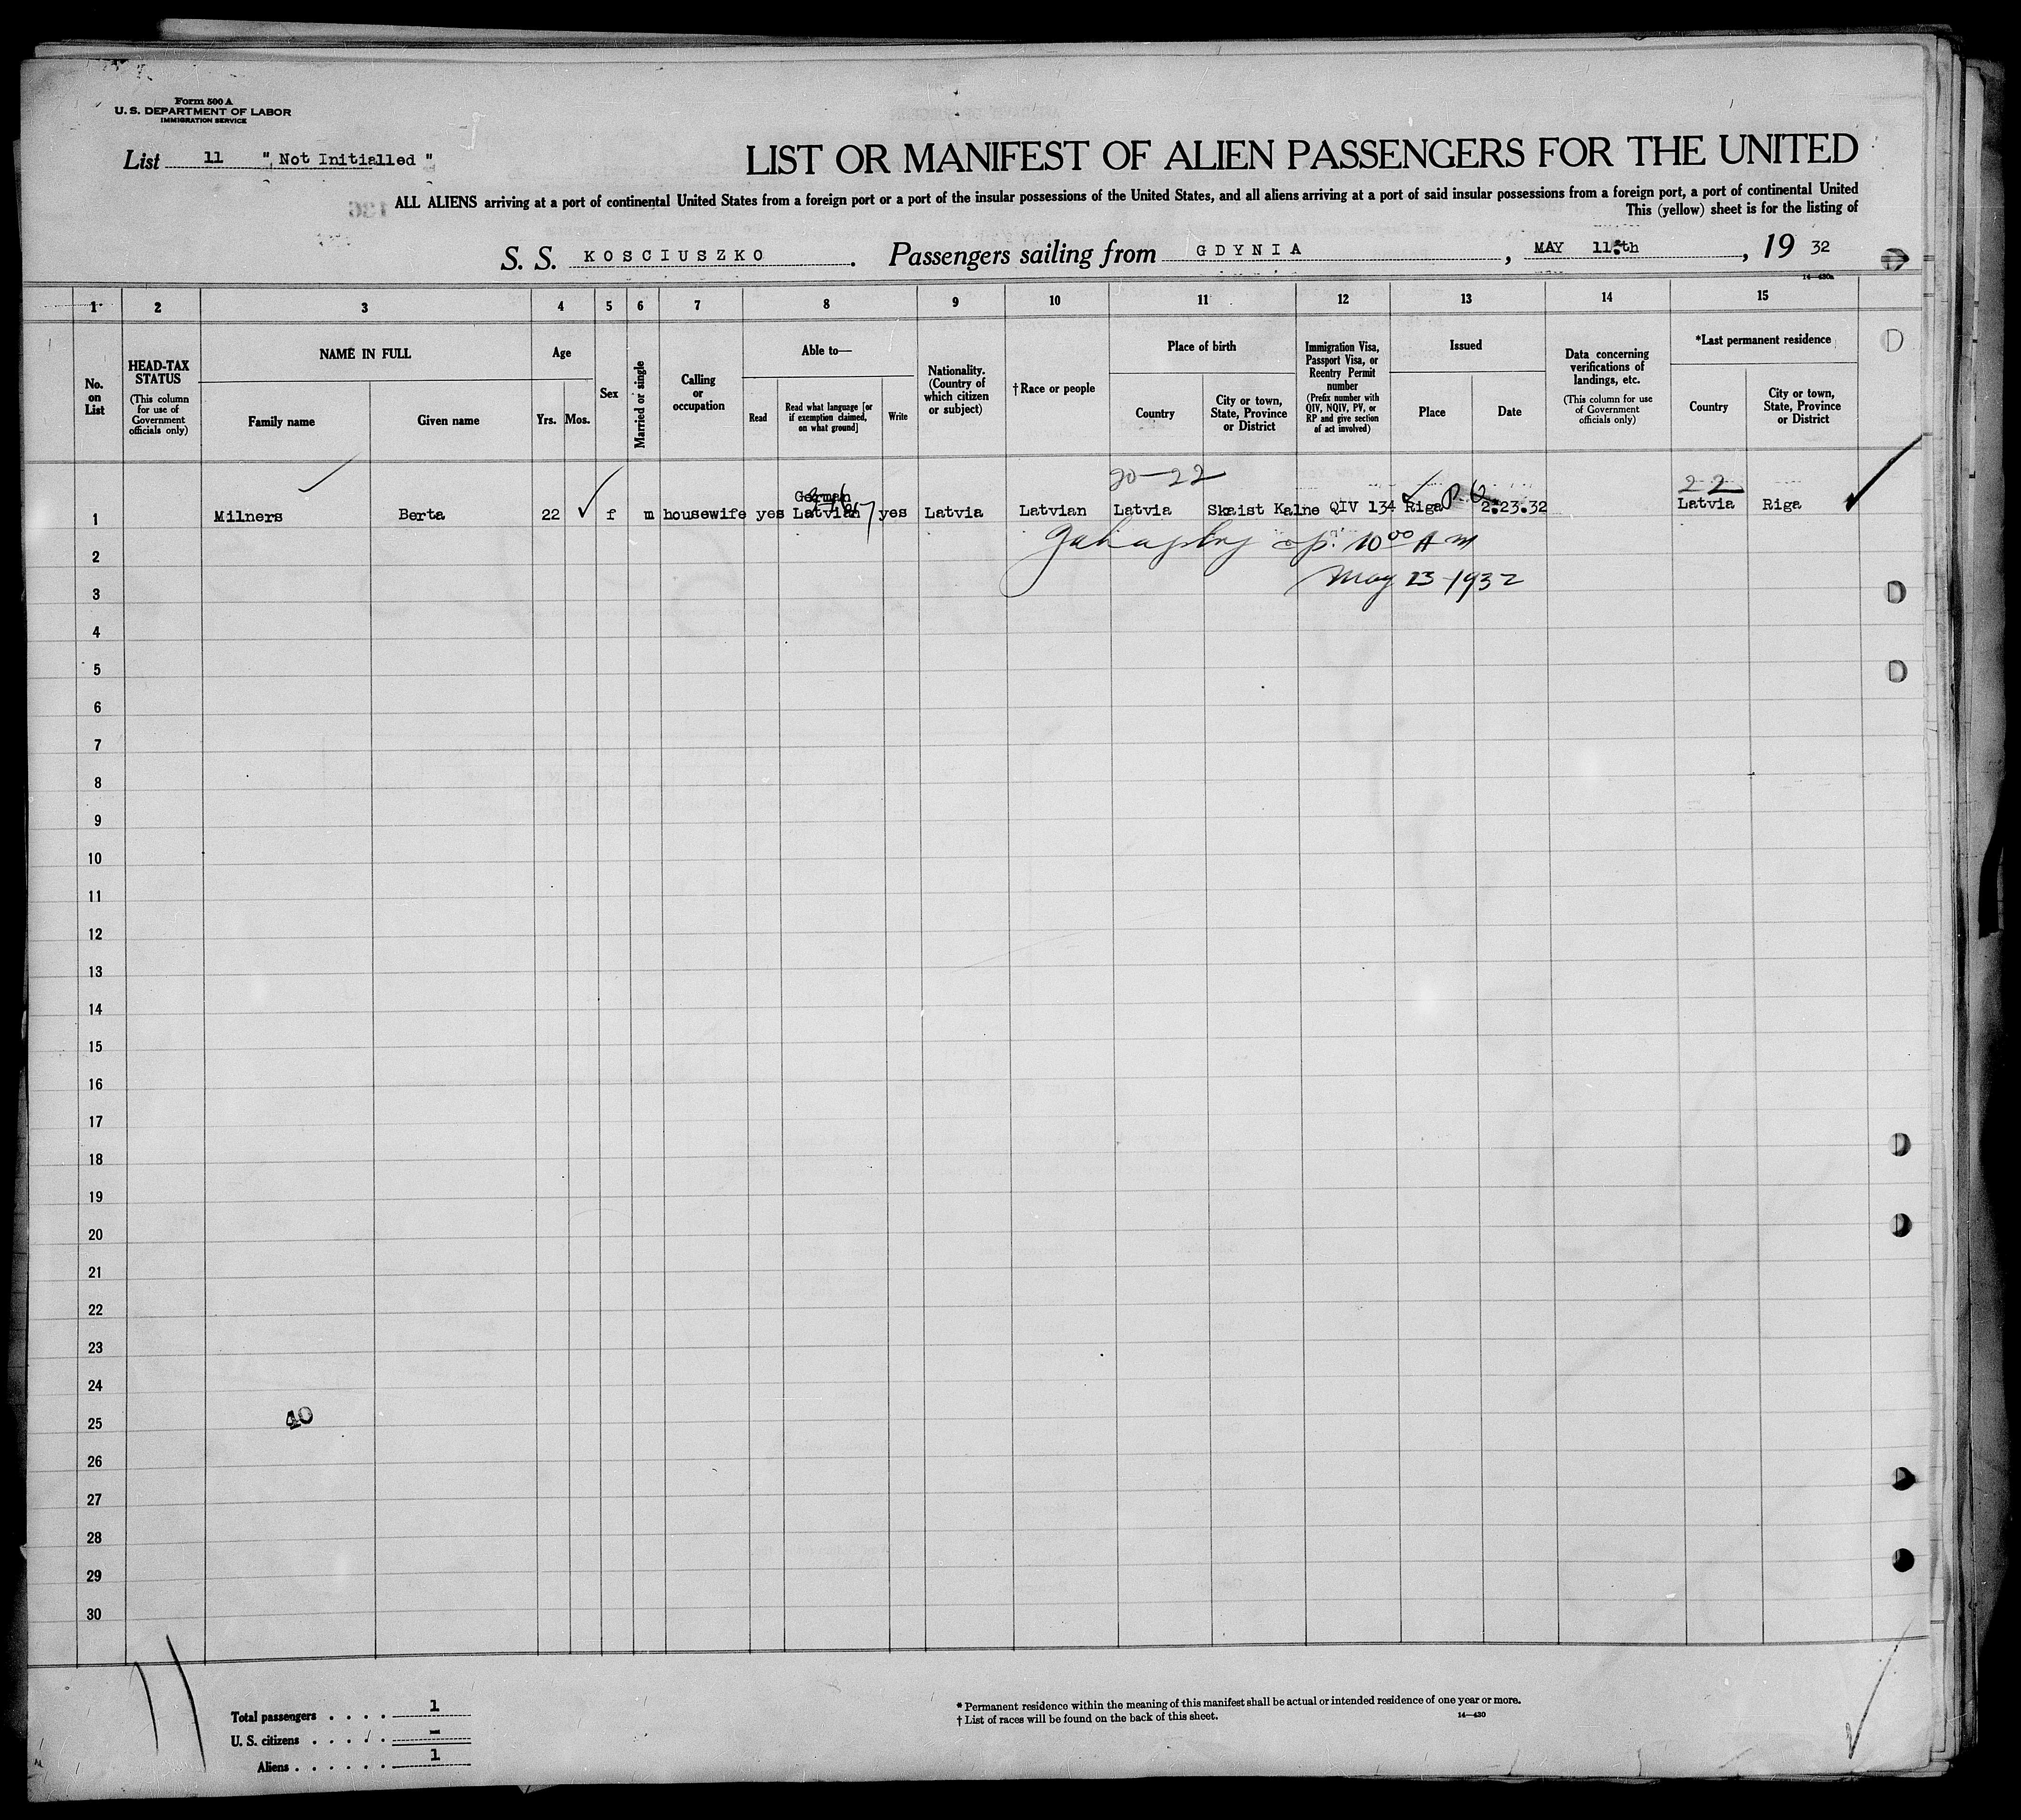 Form 500 A
U. S. DEPARTMENT OF LABOR
IMMIGRATION SERVICE
List 11 " Not Initialled "
LIST OR MANIFEST OF ALIEN PASSENGERS FOR THE UNITED
ALL ALIENS arriving at a port of continental United States from a foreign port or a port of the insular possessions of the United States, and all aliens arriving at a port of said insular possessions from a foreign port, a port of continental United
This (yellow) sheet is for the listing of
S. S. KOSCIUSZKO . Passengers sailing from GDYNIA , MAY 11:th , 19 32
14—430a
1 2 3 4 5 6 7 8 9 10 11 12 13 14 15
No. on List
HEAD-TAX STATUS
(This column for use of Government officials only)
NAME IN FULL
Family name
Given name
Age
Yrs. Mos.
Sex
Married or single
Calling or occupation
Able to—
Read
Read what language [or if exemption claimed, on what ground]
Write
Nationality. (Country of which citizen or subject)
† Race or people
Place of birth
Country
City or town, State, Province or District
Immigration Visa, Passport Visa, or Reentry Permit number
(Prefix number with QIV, NQIV, PV, or RP and give section of act involved)
Issued
Place
Date
Data concerning verifications of landings, etc.
(This column for use of Government officials only)
*Last permanent residence
Country
City or town, State, Province or District
20-22
22
German
1 Milners Berta 22 f m housewife yes Latvian yes Latvia Latvian Latvia Skaist Kalne QIV 134 Riga 2.23.32 Latvia Riga
2
10 00 A m
3
May 23-1932
4
5
6
7
8
9
10
11
12
13
14
15
16
17
18
19
20
21
22
23
24
25
40
26
27
28
29
30
Total passengers . . . . 1
U. S. citizens . . . . –
Aliens . . . . . . 1
* Permanent residence within the meaning of this manifest shall be actual or intended residence of one year or more.
† List of races will be found on the back of this sheet.
14—430